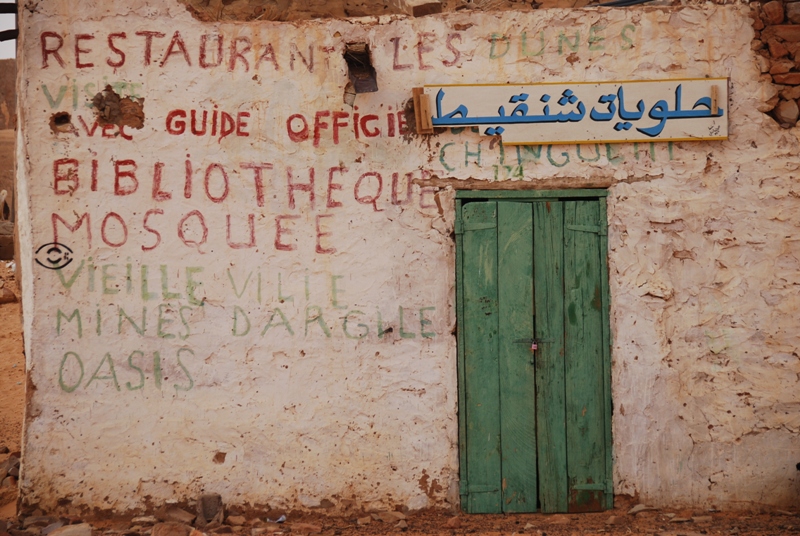 RESTAURANT LES DUNES
VISITE
AVEC GUIDE OFFICIE
حلويات شنقيط
CHINGUETTI
BIBLIOTHEQUE
MOSQUEE
VIEILLE VILLE
MINES DARGILE
OASIS